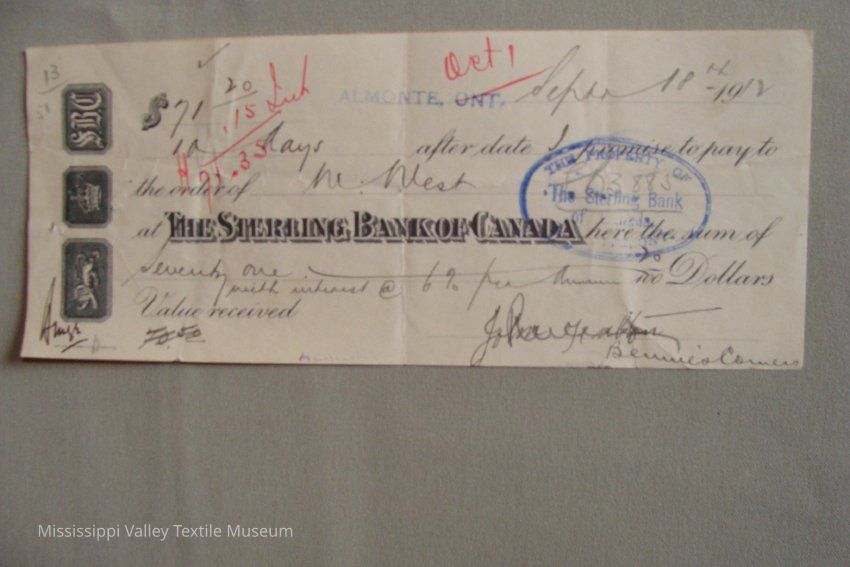 13
SBC
$ 71 20
.15 Int
71.35
Oct 1
ALMONTE, ONT. Septr 18th 1912
10 days after date I promise to pay to
the order of W. West
at THE STERLING BANK OF CANADA here the sum of
Seventy one 20/100 Dollars
with interest @ 6% per Annum
Value received
70.50
Bennie's Corners
THE PROPERTY OF
The Sterling Bank
of
Mississippi Valley Textile Museum